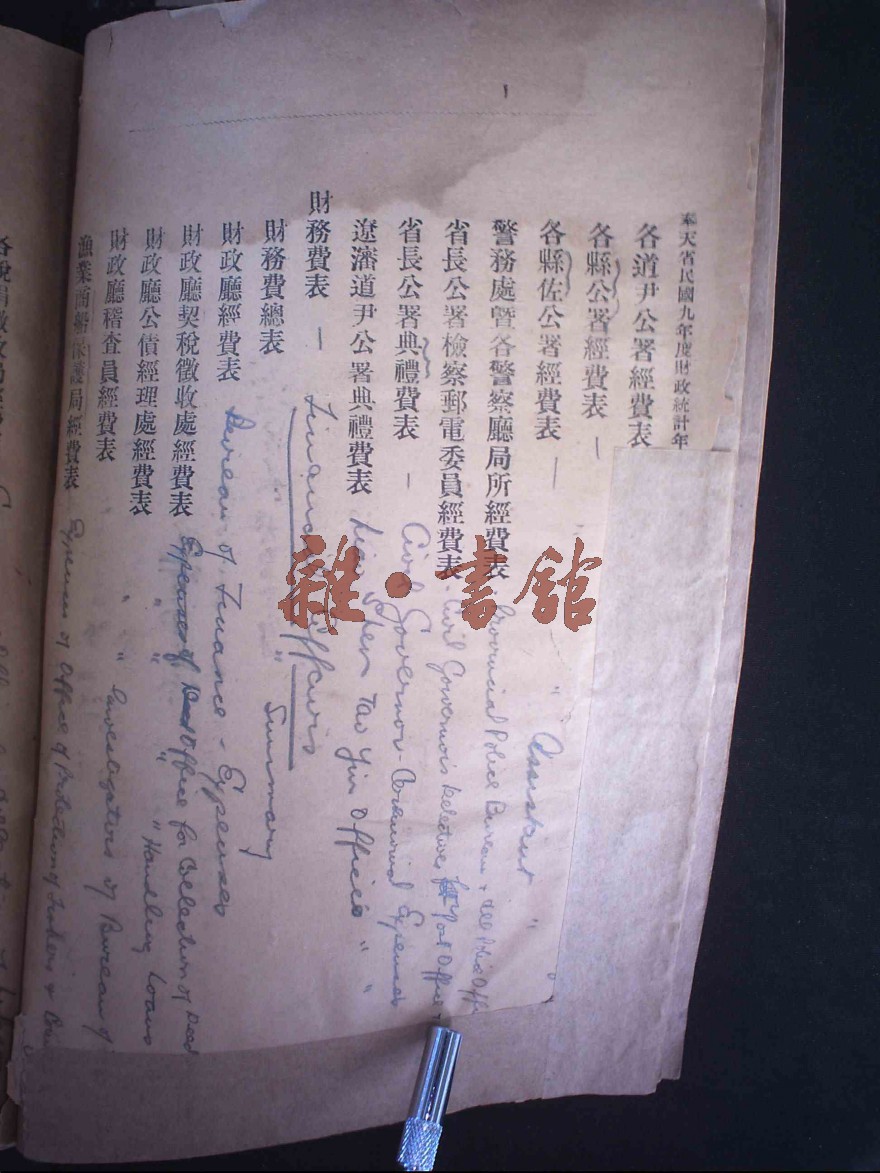 奉天省民國九年度財政統計年
各道尹公署經費表
各縣公署經費表 —
各縣佐公署經費表 — " Assistant "
警務處曁各警察廳局所經費表 Provincial Police Bureau & all Police Offi
省長公署檢察郵電委員經費表 Civil Governor's Detectives for Post Office
省長公署典禮費表 — Civil Governor - Ceremonial Expenses
遼瀋道尹公署典禮費表 Liao Shen Tao Yin Office " "
財務費表 — Financial Affairs
財務費總表 " Summary
財政廳經費表 Bureau of Finance - Expenses
財政廳契稅徵收處經費表 Expenses of Office for Collection of Deed
財政廳公債經理處經費表 " " " Handling Loans
財政廳稽查員經費表 " " Investigators of Bureau of
漁業商船保護局經費表 Expenses of Office of Protection of Traders &
雜·書館